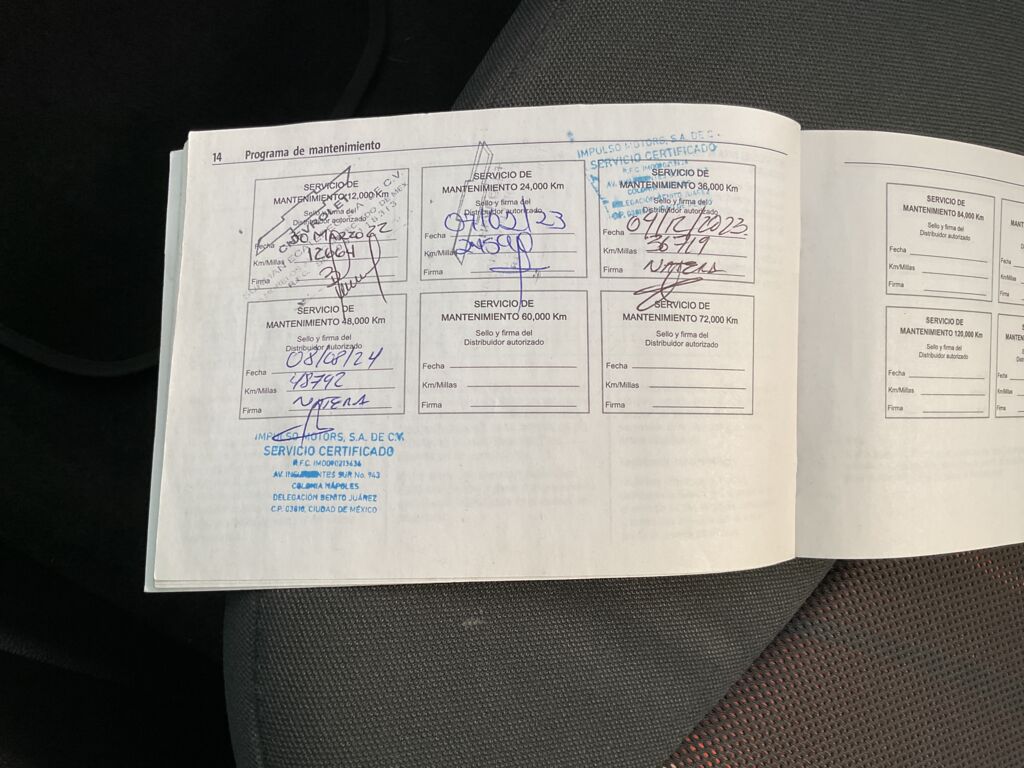 14 Programa de mantenimiento
SERVICIO DE
MANTENIMIENTO 12,000 Km
Sello y firma del
Distribuidor autorizado
CHEVROLET
Fecha 30 MARZO 22
Km/Millas 12664
Firma
SERVICIO DE
MANTENIMIENTO 24,000 Km
Sello y firma del
Distribuidor autorizado
Fecha 07/02/23
Km/Millas
Firma
IMPULSO MOTORS, S.A. DE C.
SERVICIO CERTIFICADO
SERVICIO DE
MANTENIMIENTO 36,000 Km
Sello y firma del
Distribuidor autorizado
DELEGACIÓN BENITO JUÁREZ
Fecha 07/12/2023
Km/Millas 36719
Firma NATERA
SERVICIO DE
MANTENIMIENTO 48,000 Km
Sello y firma del
Distribuidor autorizado
Fecha 08/08/24
Km/Millas 48792
Firma NATERA
IMPULSO MOTORS, S.A. DE C.V.
SERVICIO CERTIFICADO
R.F.C. IMO090213636
AV. INSURGENTES SUR No. 943
COLONIA NÁPOLES
DELEGACIÓN BENITO JUÁREZ
C.P. 03810, CIUDAD DE MÉXICO
SERVICIO DE
MANTENIMIENTO 60,000 Km
Sello y firma del
Distribuidor autorizado
Fecha
Km/Millas
Firma
SERVICIO DE
MANTENIMIENTO 72,000 Km
Sello y firma del
Distribuidor autorizado
Fecha
Km/Millas
Firma
SERVICIO DE
MANTENIMIENTO 84,000 Km
Sello y firma del
Distribuidor autorizado
Fecha
Km/Millas
Firma
SERVICIO DE
MANTENIMIENTO 120,000 Km
Sello y firma del
Distribuidor autorizado
Fecha
Km/Millas
Firma